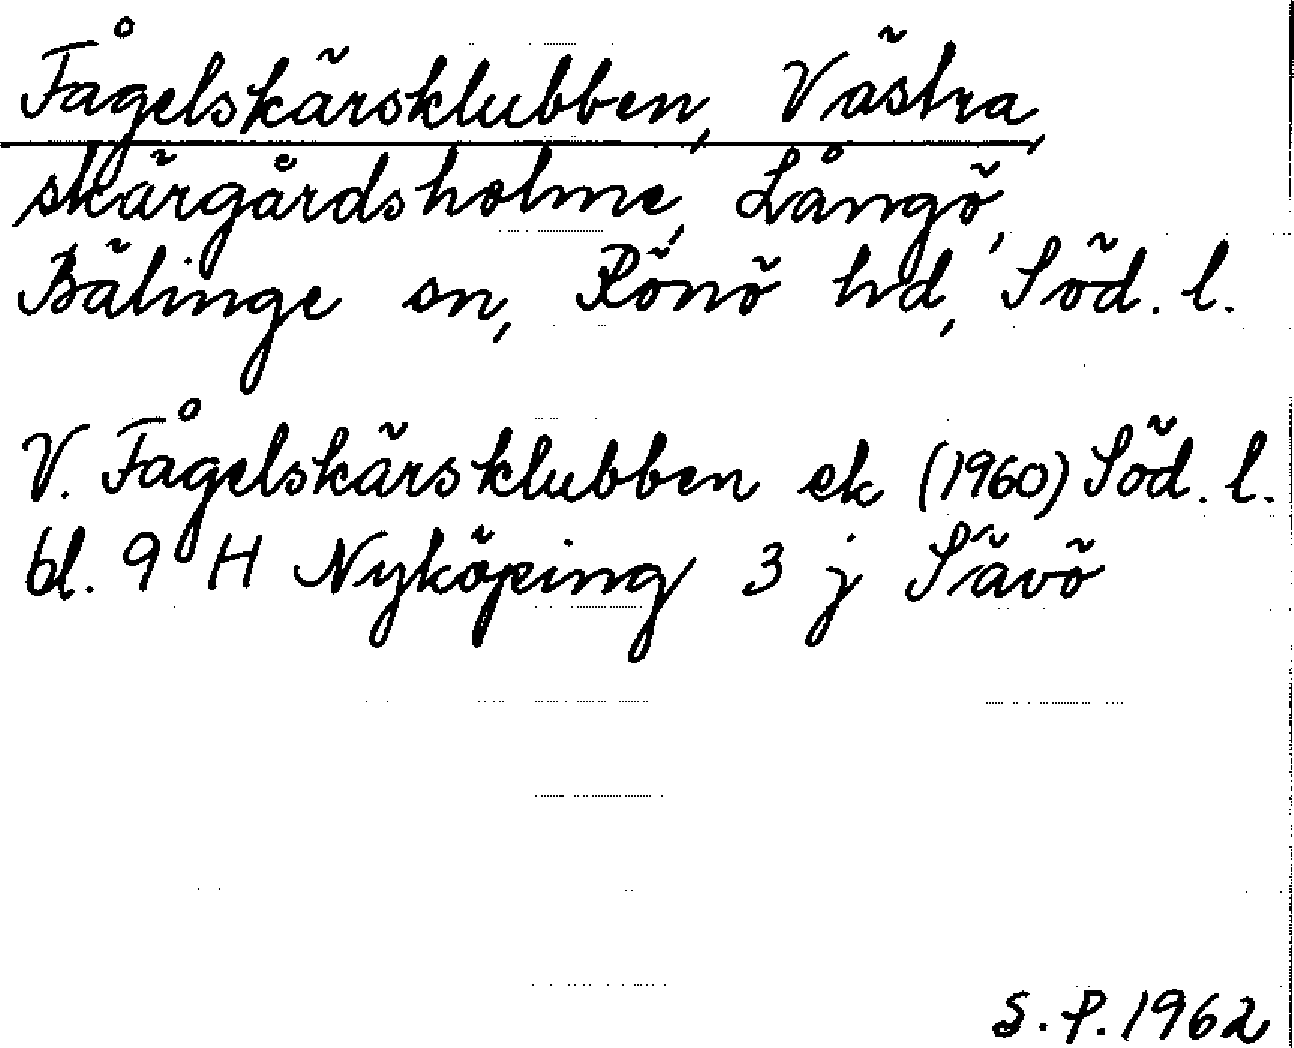 Fågelskärsklubben, Västra,
skärgårdsholme, Långö,
Bälinge sn, Rönö hd, Söd. l.
V. Fågelskärsklubben ek (1960) Söd. l.
bl. 9 H Nyköping 3 j Sävö
S.P. 1962